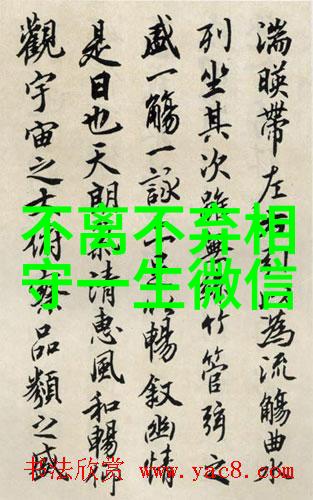 湍暎帶左右引以為流觴曲水
列坐其次雖無絲竹管弦之
盛一觴一詠亦足以暢叙幽情
是日也天朗氣清惠風和暢仰
觀宇宙之大俯察品類之盛
不离不弃相
守一生微信
书法欣赏 www.yac8.com